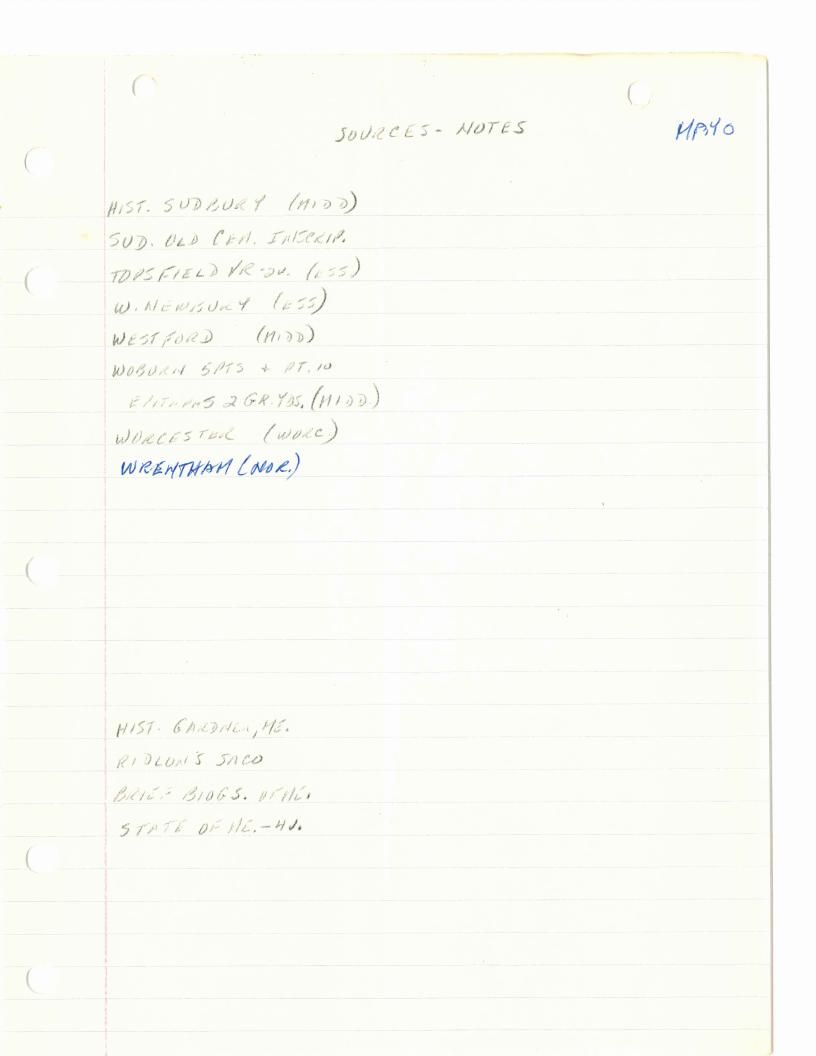 SOURCES - NOTES
MAYO
HIST. SUDBURY (MIDD)
SUD. OLD CEM. INSCRIP.
TOPSFIELD VR-2V. (ESS)
W. NEWBURY (ESS)
WESTFORD (MIDD)
WOBURN 5PTS + PT. 10
EPITAPHS 2 GR. YDS. (MIDD.)
WORCESTER (WORC.)
WRENTHAM (NOR.)
HIST. GARDNER, ME.
RIDLON'S SACO
BRIEF BIOGS. OF ME.
STATE OF ME. - 4V.